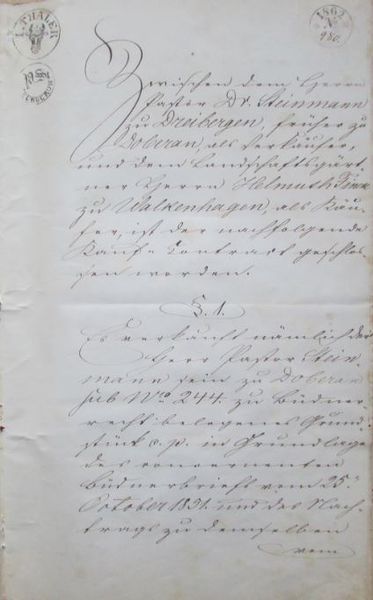 1 THALER
1862
No
980.
Zwischen dem Herrn
Pastor Dr. Steinmann
zu Dreibergen, früher zu
Doberan, als Verkäufer,
und dem Landschaftsgärt-
ner Herrn Helmuth Finck
zu Walkenhagen, als Käu-
fer, ist der nachfolgende
Kauf-Contract geschlos-
sen worden.
§. 1.
Es verkauft nämlich der
Herr Pastor Stein-
mann sein zu Doberan
sub No. 244. zu Büdner
recht belegenes Grund-
stück c. p. in Grundlage
des concernenten
Büdnerbriefs vom 25.
October 1831. und des Nach-
trags zu demselben
vom